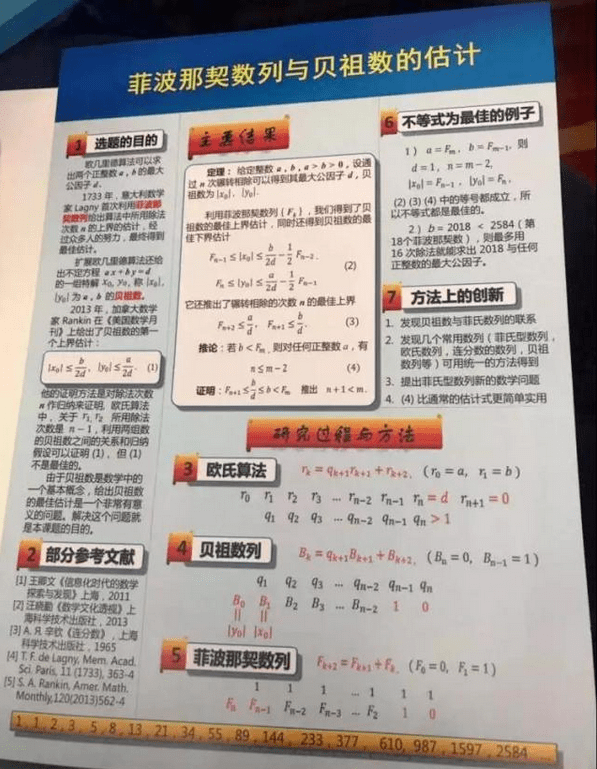 菲波那契数列与贝祖数的估计
1 选题的目的
欧几里德算法可以求
出两个正整数 a, b 的最大
公因子 d.
1733 年，意大利数学
家 Lagny 首次利用菲波那
契数列给出算法中所用除法
次数 n 的上界的估计，经
过众多人的努力，最终得到
最佳估计。
扩展欧几里德算法还给
出不定方程 ax + by = d
的一组特解 x₀, y₀, 称 |x₀|,
|y₀| 为 a, b 的贝祖数。
2013 年，加拿大数学
家 Rankin 在《美国数学月
刊》上给出了贝祖数的第一
个上界估计：
|x₀| ≤ b/2d, |y₀| ≤ a/2d. (1)
他的证明方法是对除法次数
n 作归纳来证明, 欧氏算法
中，关于 r₁, r₂ 所用除法
次数是 n − 1，利用两组数
的贝祖数之间的关系和归纳
假设可以证明 (1)、但 (1)
不是最佳的。
由于贝祖数是数学中的
一个基本概念，给出贝祖数
的最佳估计是一个非常有意
义的问题。解决这个问题就
是本课题的目的。
2 部分参考文献
[1] 王卿文《信息化时代的数学
探索与发现》上海，2011
[2] 汪晓勤《数学文化透视》上
海科学技术出版社，2013
[3] А. Я. 辛钦《连分数》，上海
科学技术出版社，1965
[4] T. F. de Lagny, Mem. Acad.
Sci. Paris, 11 (1733), 363-4
[5] S. A. Rankin, Amer. Math.
Monthly,120(2013)562-4
主要结果
定理：给定整数 a, b, a > b > 0，设通
过 n 次辗转相除可以得到其最大公因子 d，贝
祖数为 |x₀|, |y₀|.
利用菲波那契数列 {Fₖ}，我们得到了贝
祖数的最佳上界估计，同时还得到贝祖数的最
佳下界估计
Fₙ₋₁ ≤ |x₀| ≤ b/2d − 1/2 Fₙ₋₂.
(2)
Fₙ ≤ |y₀| ≤ a/2d − 1/2 Fₙ₋₁
它还推出了辗转相除的次数 n 的最佳上界
Fₙ₊₂ ≤ a/d, Fₙ₊₁ ≤ b/d. (3)
推论：若 b < Fₘ, 则对任何正整数 a，有
n ≤ m − 2 (4)
证明：Fₙ₊₁ ≤ b/d ≤ b < Fₘ 推出 n + 1 < m.
6 不等式为最佳的例子
1）a = Fₘ, b = Fₘ₋₁, 则
d = 1, n = m − 2,
|x₀| = Fₙ₋₁, |y₀| = Fₙ,
(2) (3) (4) 中的等号都成立，所
以不等式都是最佳的。
2）b = 2018 < 2584（第
18个菲波那契数），则最多用
16 次除法就能求出 2018 与任何
正整数的最大公因子。
7 方法上的创新
1. 发现贝祖数与菲氏数列的联系
2. 发现几个常用数列（菲氏型数列，
欧氏数列，连分数的数列，贝祖
数列等）可用统一的方法得到
3. 提出菲氏型数列新的数学问题
4. (4) 比通常的估计式更简单实用
研究过程与方法
3 欧氏算法 rₖ = qₖ₊₁rₖ₊₁ + rₖ₊₂,（r₀ = a, r₁ = b）
r₀ r₁ r₂ r₃ … rₙ₋₂ rₙ₋₁ rₙ = d rₙ₊₁ = 0
q₁ q₂ q₃ … qₙ₋₂ qₙ₋₁ qₙ > 1
4 贝祖数列 Bₖ = qₖ₊₁Bₖ₊₁ + Bₖ₊₂,（Bₙ = 0, Bₙ₋₁ = 1）
q₁ q₂ q₃ … qₙ₋₂ qₙ₋₁ qₙ
B₀ B₁ B₂ B₃ … Bₙ₋₂ 1 0
|| ||
|y₀| |x₀|
5 菲波那契数列 Fₖ₊₂ = Fₖ₊₁ + Fₖ,（F₀ = 0, F₁ = 1）
1 1 1 … 1 1 1
Fₙ Fₙ₋₁ Fₙ₋₂ Fₙ₋₃ … F₂ 1 0
1, 1, 2, 3, 5, 8, 13, 21, 34, 55, 89, 144, 233, 377, 610, 987, 1597, 2584 …